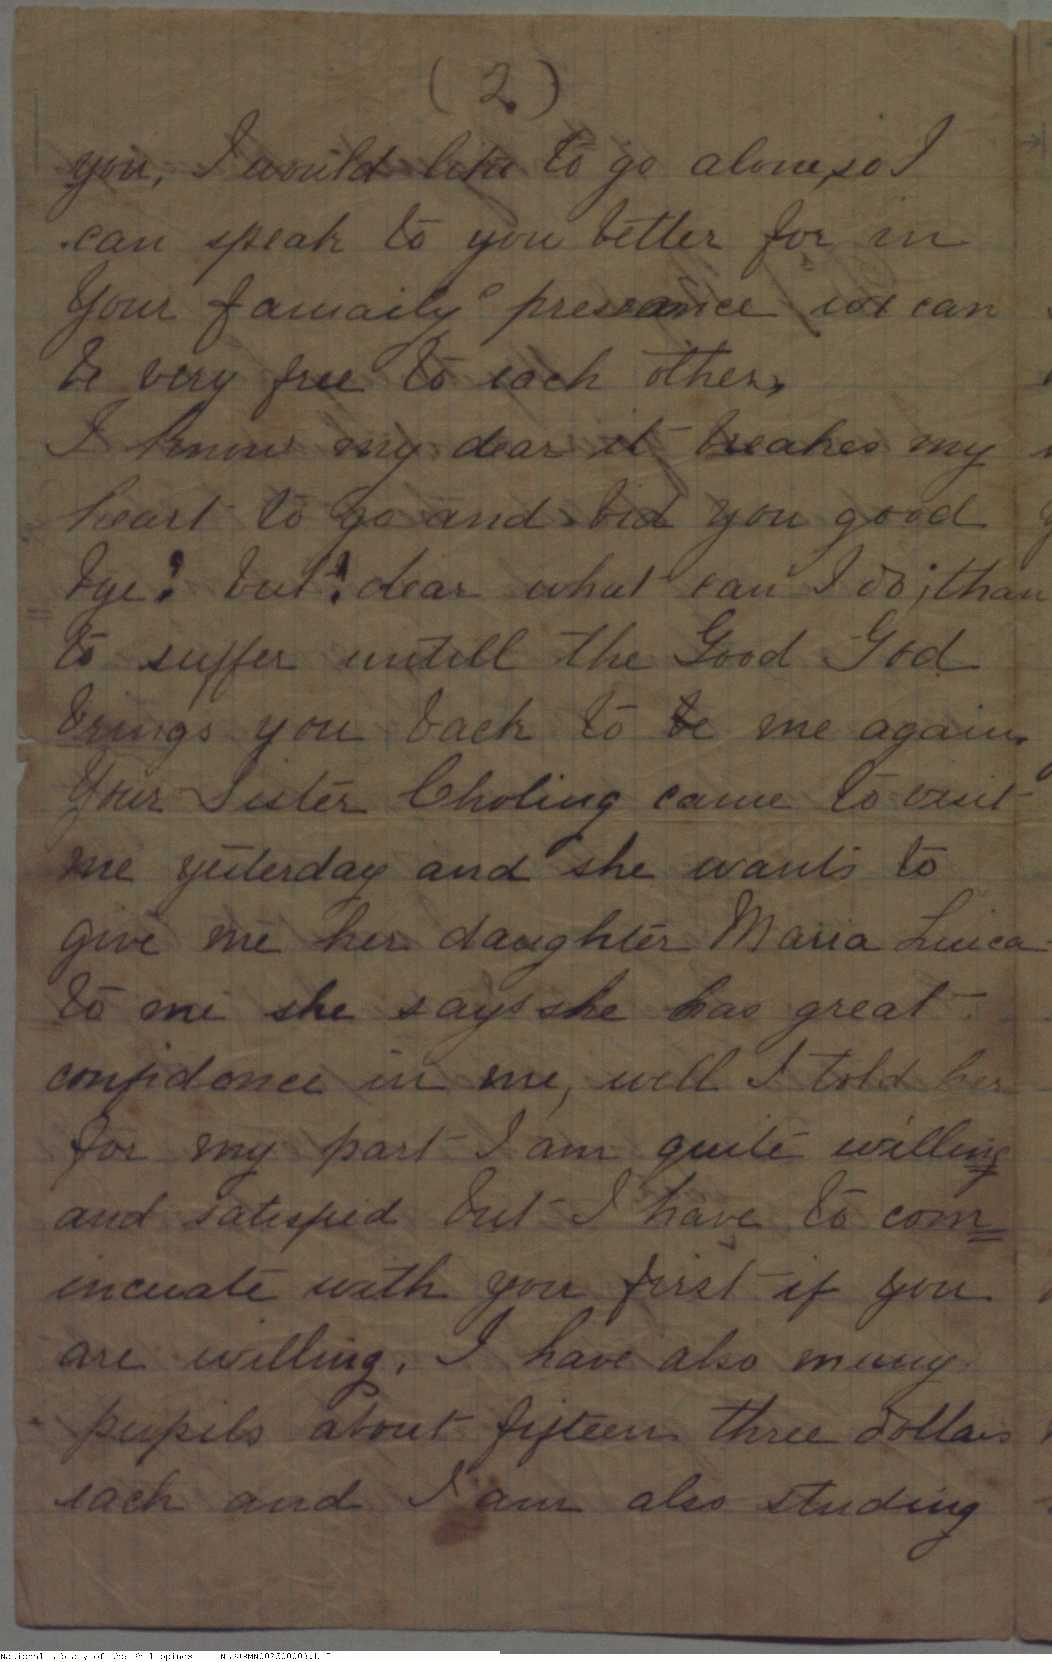 (2)
you, I would like to go alone, so I
can speak to you better for in
Your famaily presance wi can
be very free to each other,
I know my dear it breakes my
heart to go and bid you good
bye! but! dear what can I do; than
to suffer untill the Good God
brings you back to be me again.
Your Sister Choling came to visit
me yesterday and she wants to
give me her daughter Maria Luica
to me she says she has great
confidence in me, well I told her
for my part I am quite willing
and satisfied but I have to com=
incuate with you first if you
are willing. I have also many
pupils about fifteen three dollars
each and I am also studing
National Library of the Philippines